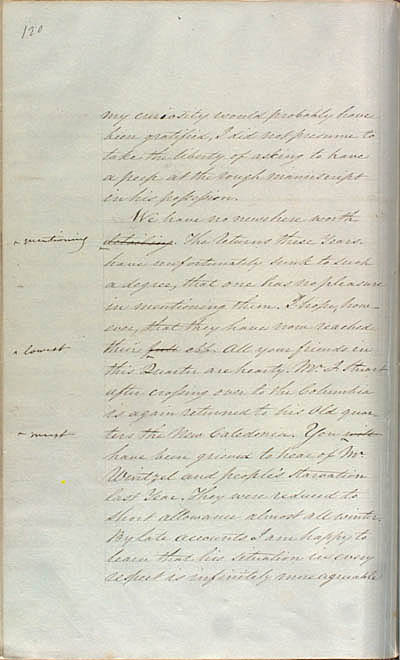 120
my curiosity would probably have
been gratified, I did not presume to
take the liberty of asking to have
a peep at the rough manuscript
in his possession.
We have no news here worth
^ mentioning
detailing. The Returns these Years
have unfortunately sunk to such
a degree, that one has no pleasure
in mentioning them. I hope, how-
ever, that they have now reached
^ lowest
their ebb. All your friends in
this Quarter are hearty. Mr. J. Stuart
after crossing over to the Columbia
is again returned to his Old quar-
^ must
ters the New Caledonia. You will
have been grieved to hear of Mr.
Wentzel and people's starvation
last Year. They were reduced to
short allowance almost all winter.
By late accounts I am happy to
learn that his situation in every
respect is infinitely more agreeable